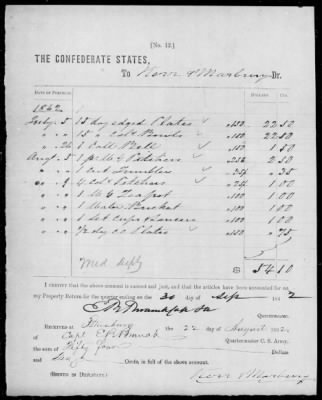 [No. 12.]
THE CONFEDERATE STATES,
To Kerr & Marbury Dr.
DATE OF PURCHASE. DOLLARS CTS.
1862
July 5 15 doz edged Plates 150 22 50
" " 15 " Cold Bowls 150 22 50
" 26 1 Call Bell 1 50
Augt. 5 1 pr Pitchers 250 2 50
" " 1 cut Tumbler 35
" " 4 Cold Pitchers 1 00
" " 1 Tea pot 100 1 00
" " 1 Water Bucket 100 1 00
" " 1 Set cups & Saucers 100 1 00
" " 1/2 doz C C Plates 75
$ 54 10
I CERTIFY that the above account is correct and just, and that the articles have been accounted for on
my Property Return for the quarter ending on the 30 day of Sep 1862
Quartermaster.
RECEIVED at the 22 day of August 1862,
of Capt. Quartermaster C. S. Army,
Fifty four Dollars
and Ten Cents, in full of the above account.
(SIGNED IN DUPLICATE.) Kerr & Marbury